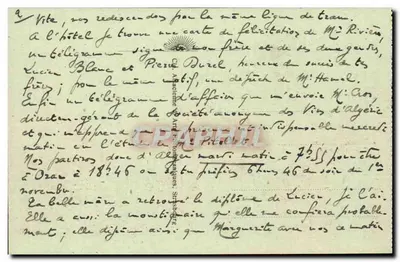 Vite, nous redescendons pour la même ligne de tram.
A l'hôtel je trouve une carte de félicitations de Mme Rivière,
un télégramme signé de mon frère et de ses deux gendres,
Lucien Blanc et Pierre Burel, heureux du succès de tes
frères; pour le même motif, un dépêche de Mr Hamel.
Enfin un télégramme d'affaires que m'envoie Mr Cros,
directeur-gérant de la Société anonyme des Vins d'Algérie
et qui m'apprend
matin en l'étude de Me
Nos partirons donc d'Alger mardi matin à 7h55 pour être
à Oran à 18h46 ou si tu préfères 6 heures 46 du soir du 1er
novembre.
Ta belle mère a retrouvé le diplôme de Lucien, je l'ai.
Elle a aussi la moustiquaire qu'elle me confiera probable-
ment; elle déjeune ainsi que Marguerite avec nous ce matin